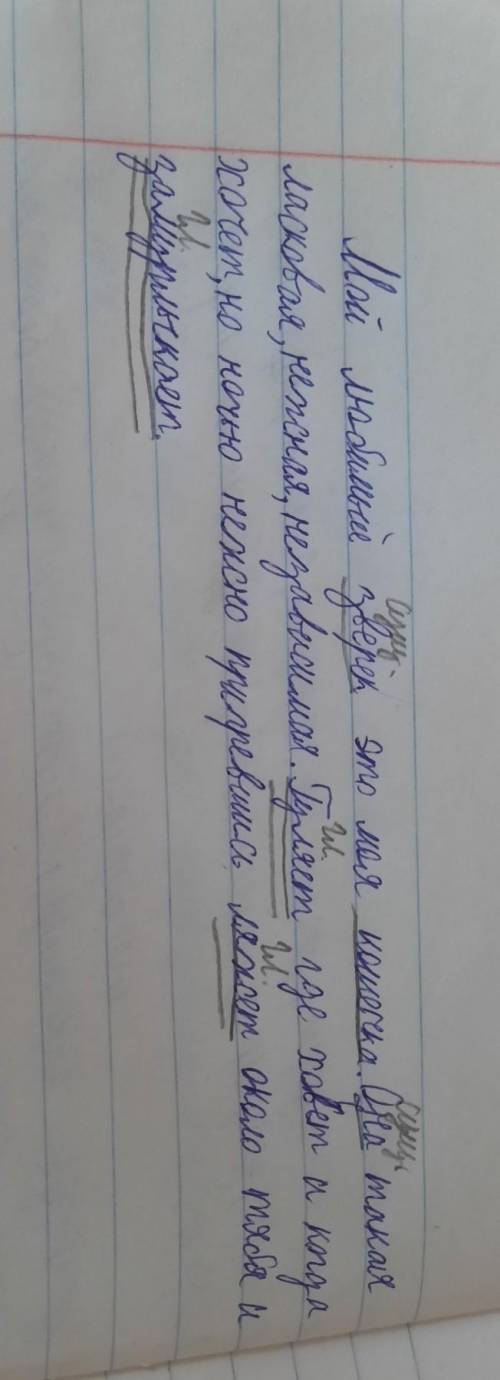 сущ. сущ.
Мой любимый зверек это моя кошечка. Она такая
гл.
ласковая, нежная, независимая. Гуляет где ховет и когда
гл.
хочет, но ночью нежно пригревшись ляжет около тябя и
гл.
замурлыкает.